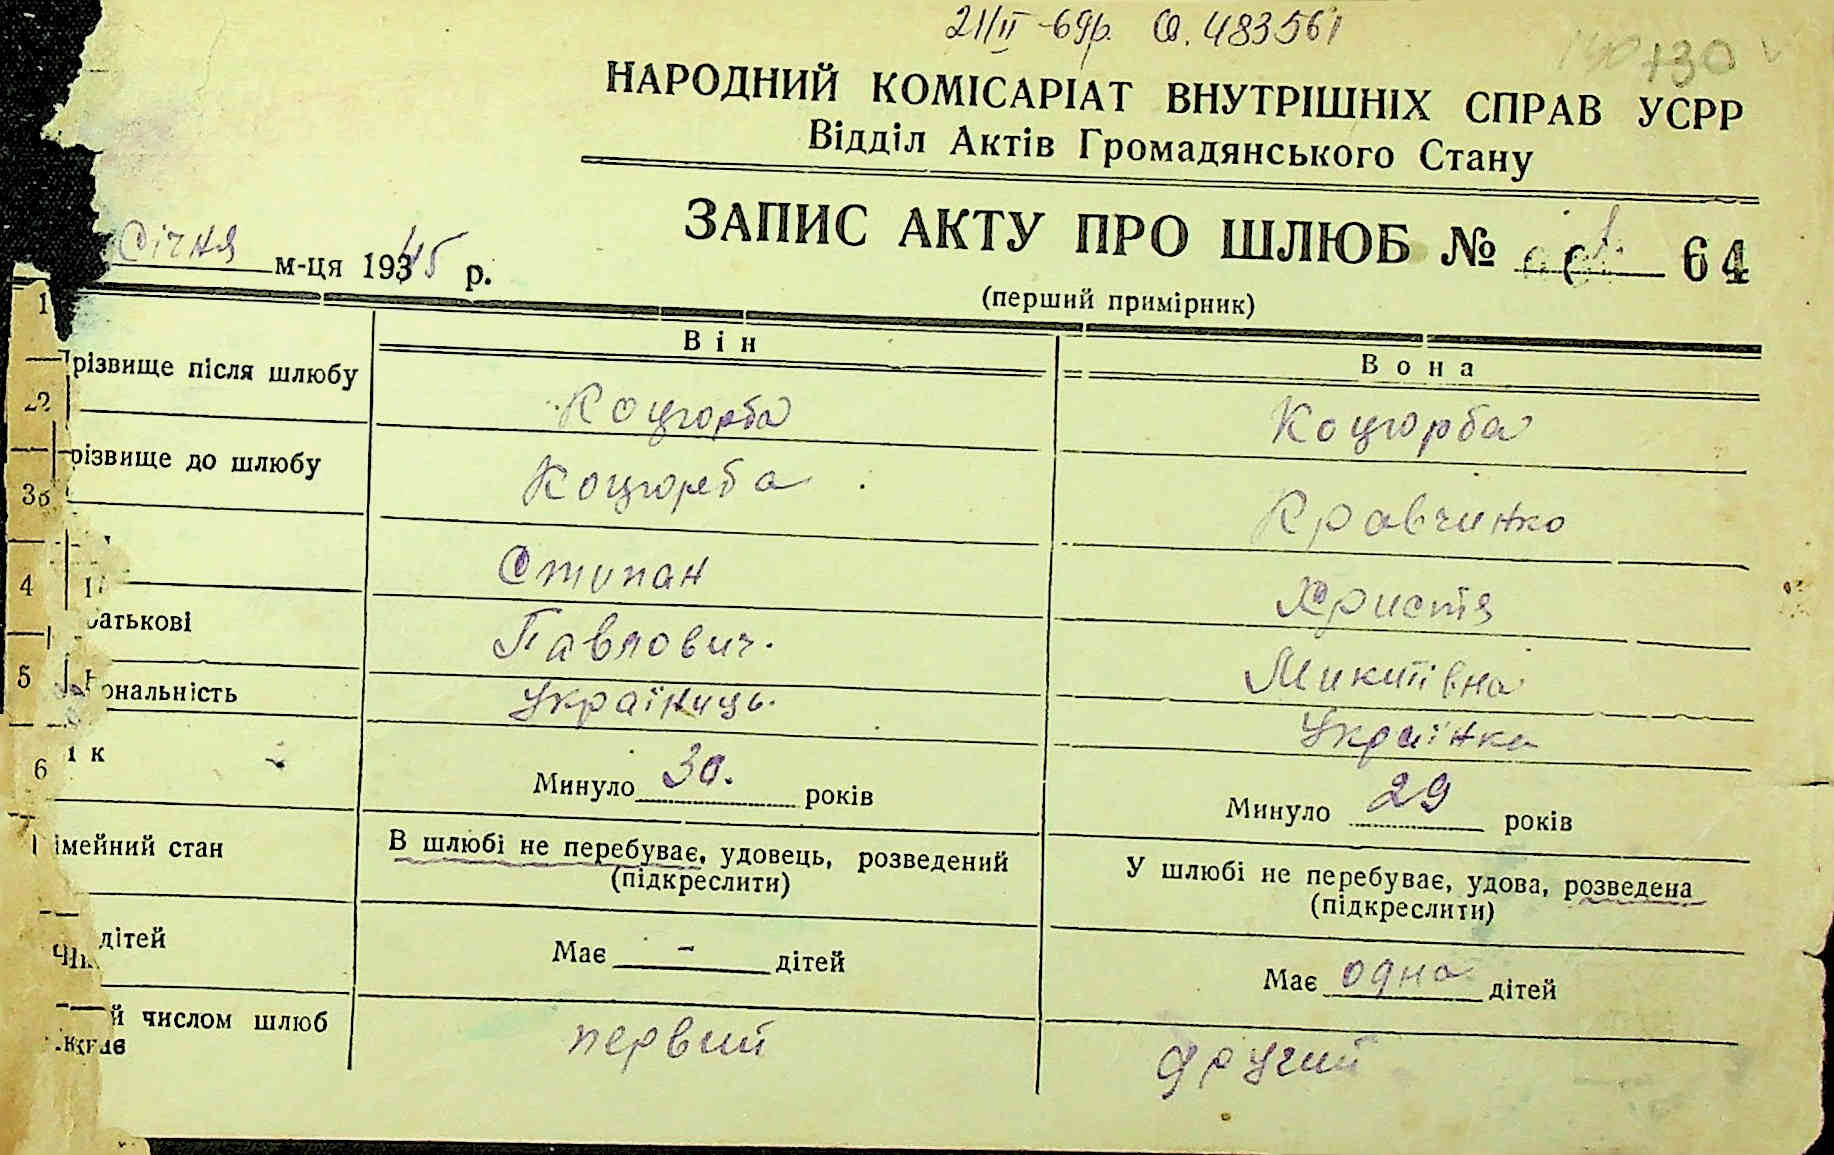 21/II-69р. 483561
130
НАРОДНИЙ КОМІСАРІАТ ВНУТРІШНІХ СПРАВ УСРР
Відділ Актів Громадянського Стану
ЗАПИС АКТУ ПРО ШЛЮБ № 64
Січня м-ця 1935 р.
(перший примірник)
1
Він Вона
різвище після шлюбу Коцюрба Коцюрба
22
різвище до шлюбу Коцюрба Кравчинко
3
Стипан Христя
4
батькові Павлович. Микитівна
5
ональність Україниць. Українка
6
і к Минуло 30. років Минуло 29 років
імейний стан В шлюбі не перебуває, удовець, розведений У шлюбі не перебуває, удова, розведена
(підкреслити) (підкреслити)
дітей Має - дітей Має одна дітей
й числом шлюб первий другий